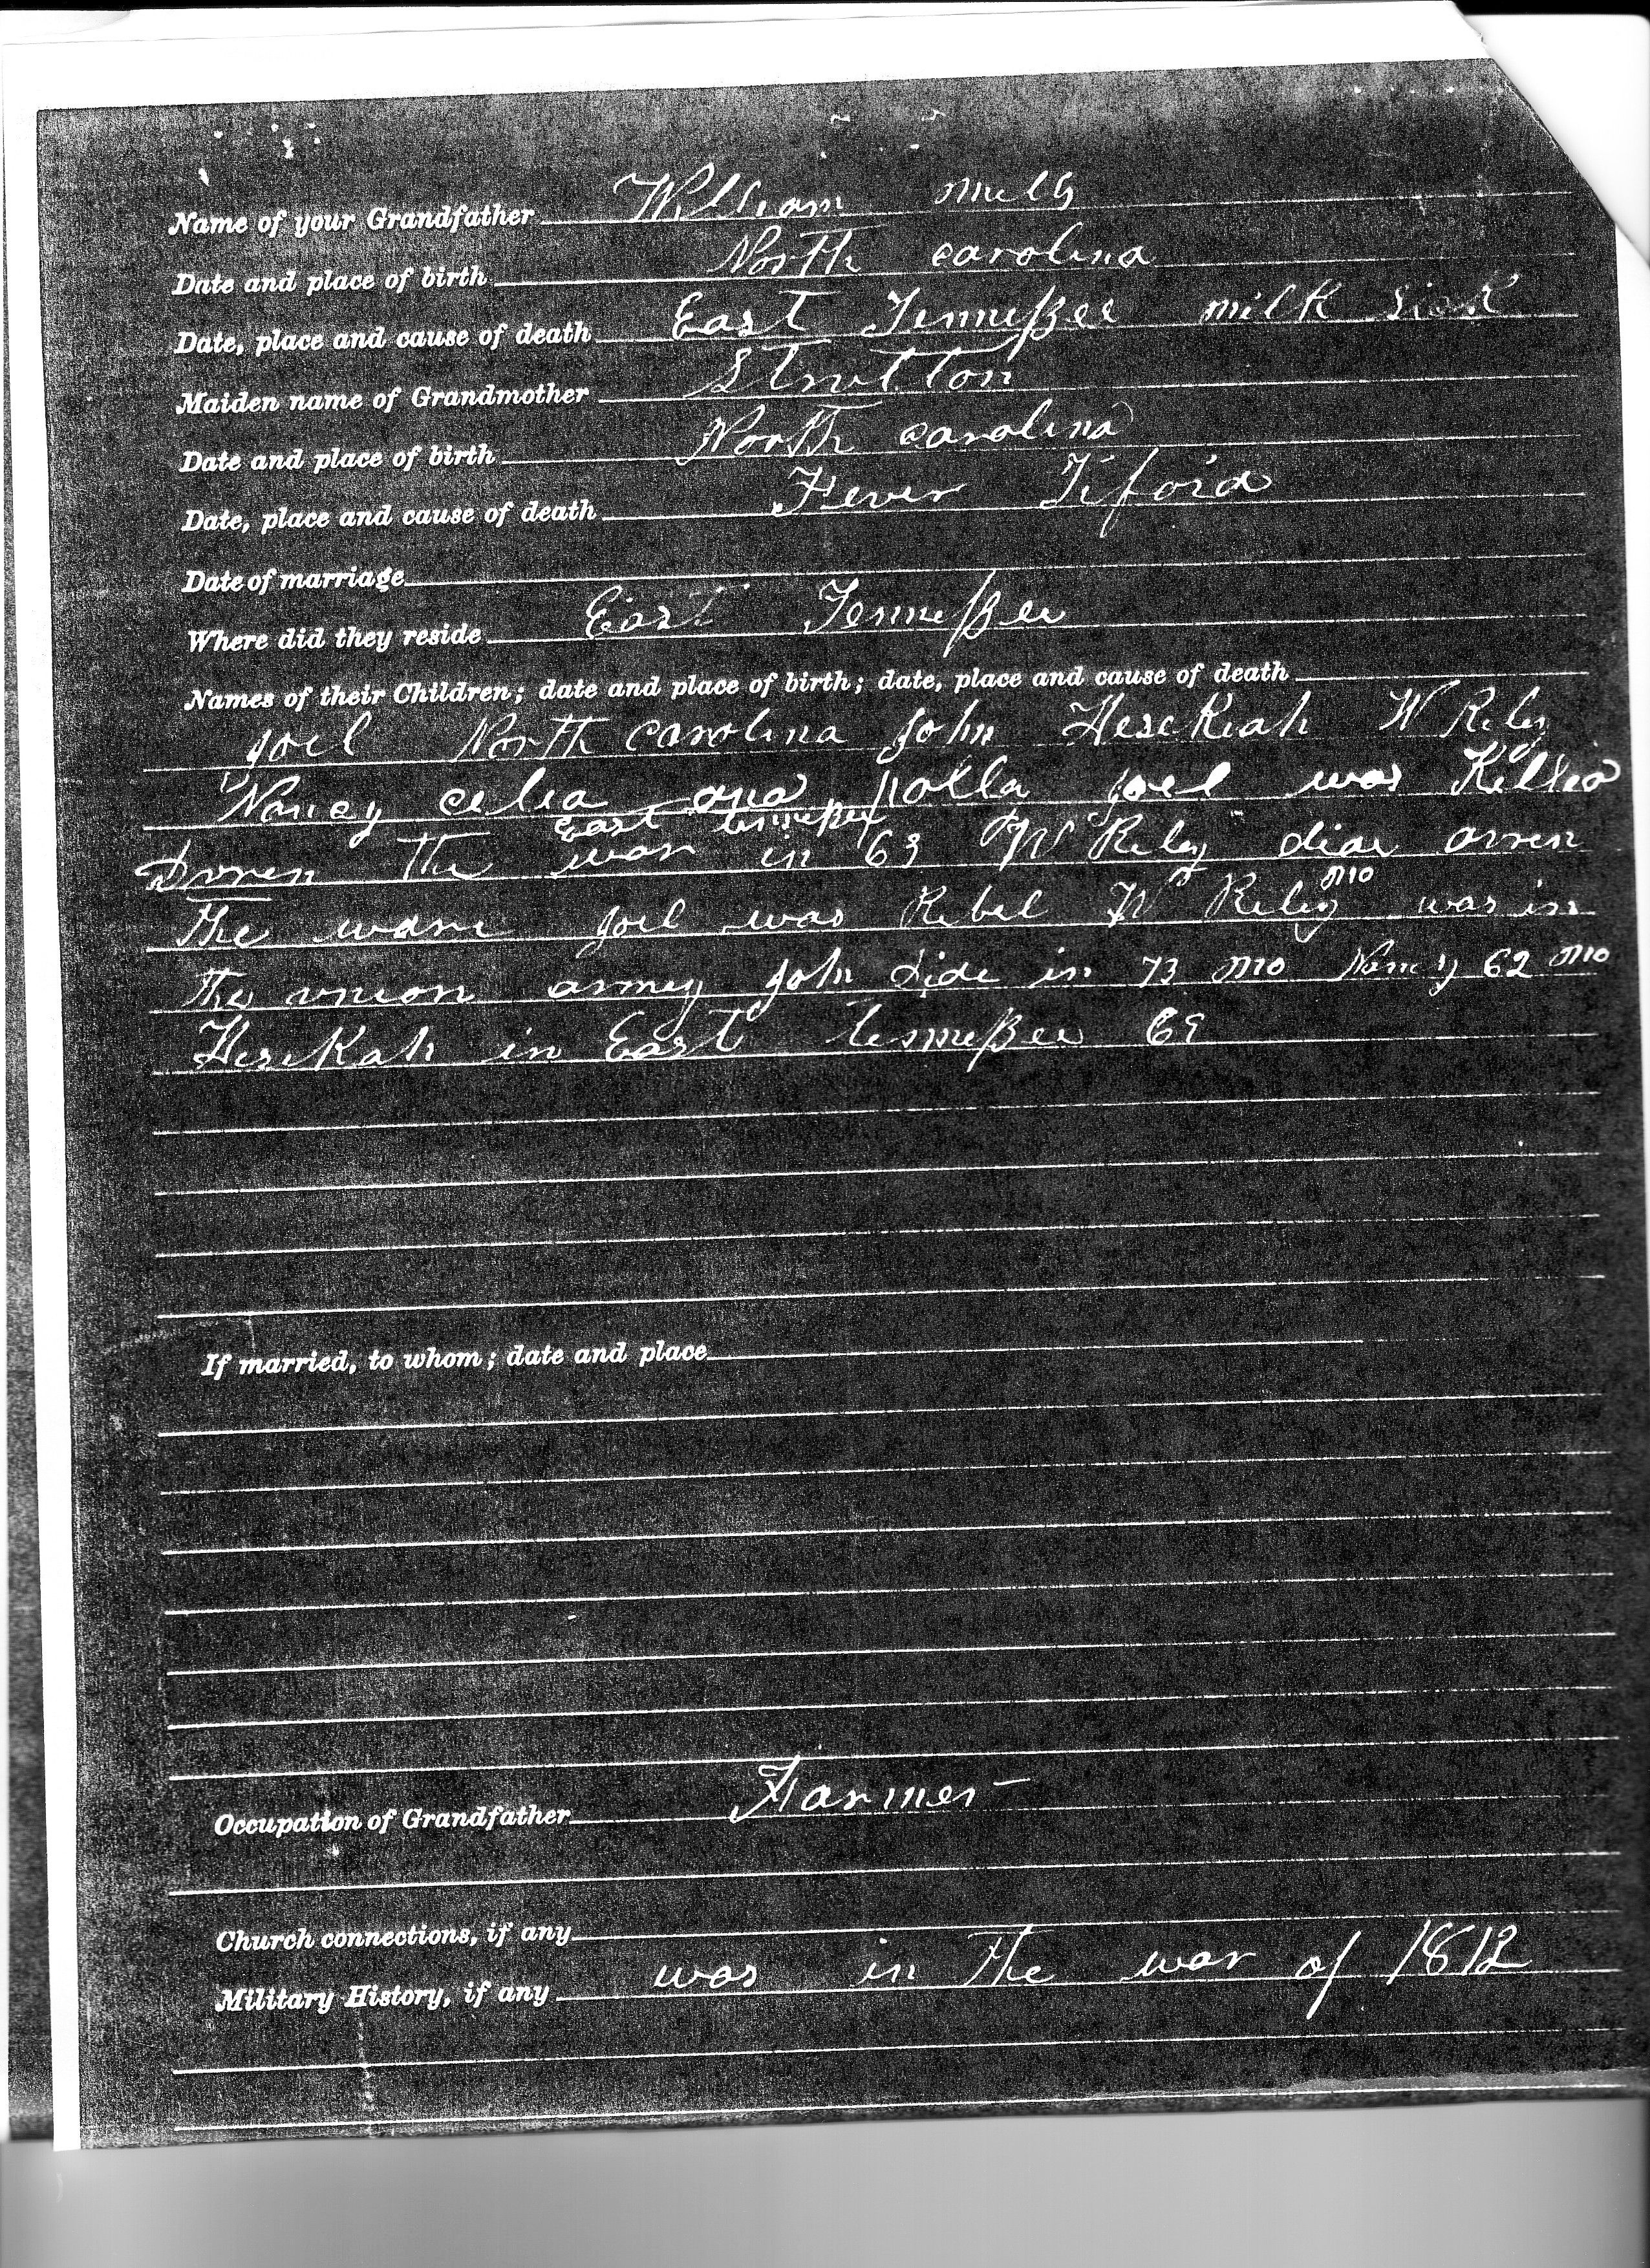 Name of your Grandfather William Mills
Date and place of birth North carolina
Date, place and cause of death East Tennessee milk sick
Maiden name of Grandmother
Date and place of birth North carolina
Date, place and cause of death Fever Tifoid
Date of marriage
Where did they reside East Tennessee
Names of their Children; date and place of birth; date, place and cause of death
joel North carolina john Hesekiah W Riley
Nancy celia and polla joel was Killed
East tennessee
the war in 63 W Riley
mo
the joel was Rebel W Riley was in
the union army john dide in 73 mo Nancy 62 mo
Hesekah in East tennessee 69
If married, to whom; date and place
Occupation of Grandfather Farmer
Church connections, if any
Military History, if any was in the war of 1812